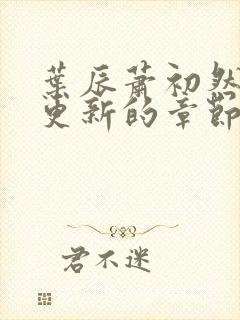 葉辰蕭初然
更新的章節
君不迷